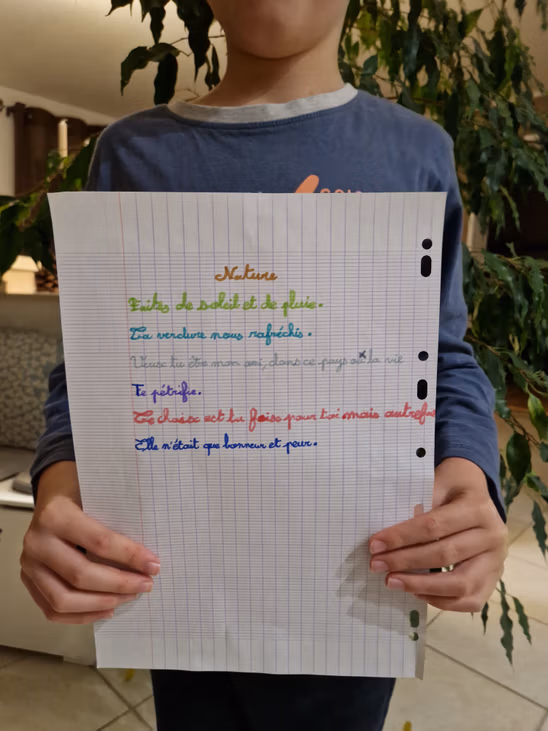 Nature
Faites de soleil et de pluie.
La verdure nous rafréchis.
Veux tu être mon ami, dans ce pays où la vie
Te pétrifie.
Le choix est tu fois pour toi mais autrefois
Elle n'était que bonneur et peur.